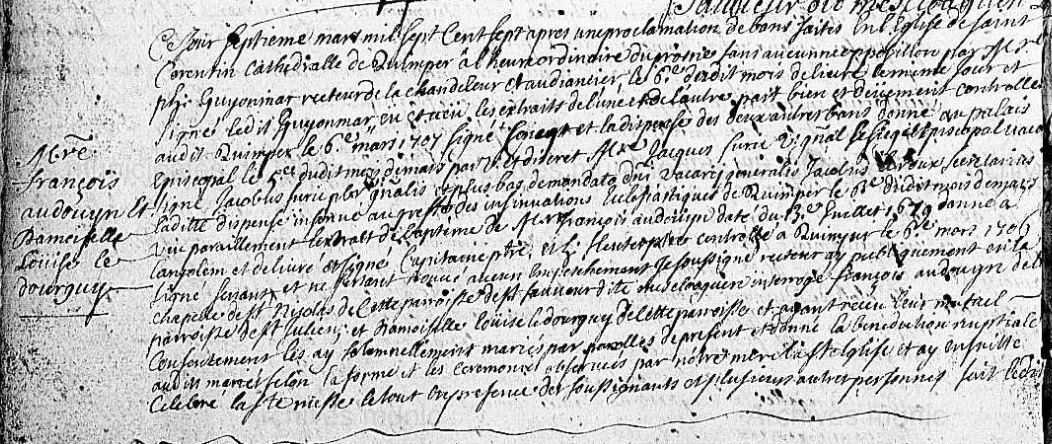 Ce Jour septieme mars mil sept Cent sept apres une proclamation de bans faites En l'Eglise de saint
Corentin Cathedralle de Quimper a l'heure ordinaire du prosne sans aucunne opposition par Mre
Guyonmar recteur de la chandeleur et audiancier le 6e dudit mois delivré le mesme jour et
signé ledit Guyonmar, eu et veu les extraits de l'une et de l'autre part bien et deuement controllé
audit Quimper le 6e mars 1707 signé et la dispense des deux autres bans donné au palais
Episcopal le 5e dudit mois de mars par Vble et discret Mre Jacques
signé Jacobus et plus bas de mandato dni vicarii generalis Jacobus secretarius
ladite dispense insinué au greffe des insinuations Eclesiastiques de Quimper le 6e dudit mois de mars
vue pareillement l'extrait de baptême de Mre François audouyn daté du 13e Juillet 1679 donné a
Langolem et delivré et signé Capitaine ptre, et controllé a Quimper le 6e mars 1706
signé et ne s'estant trouvé aucun Empeschement Je soussigné recteur ay publiquement en la
chapelle de st Nicolas de Cette paroisse de st sauveur dite interogé françois audouyn de la
paroisse de st Julien, et Damoiselle Loüise le dourguy de cette parroisse et ayant receu leur mutuel
Consentement les ay solemnellement mariés par parolles de present et donné la benediction nuptiale
audit mariés selon la forme et les ceremonies observées par nostre mere la ste Eglise et ay ensuitte
Celebré la ste messe le tout En presence des soussignants et plusieurs autres personnes fait ledit
Mre
françois
audoüyn Et
Damoiselle
Loüise le
dourguy